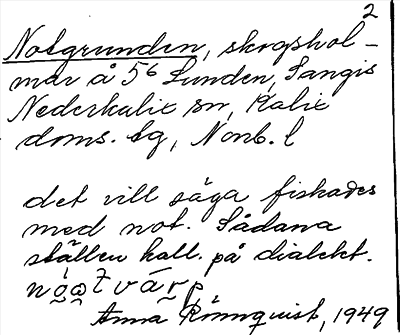 2
Notgrunden, skogshol-
mar å 56 Lunden, Sangis
Nederkalix sn, Kalix
doms. tg, Norrb. l
det vill säga fiskades
med not. Sådana
ställen kall. på dialekt.
Anna Rönnquist, 1949